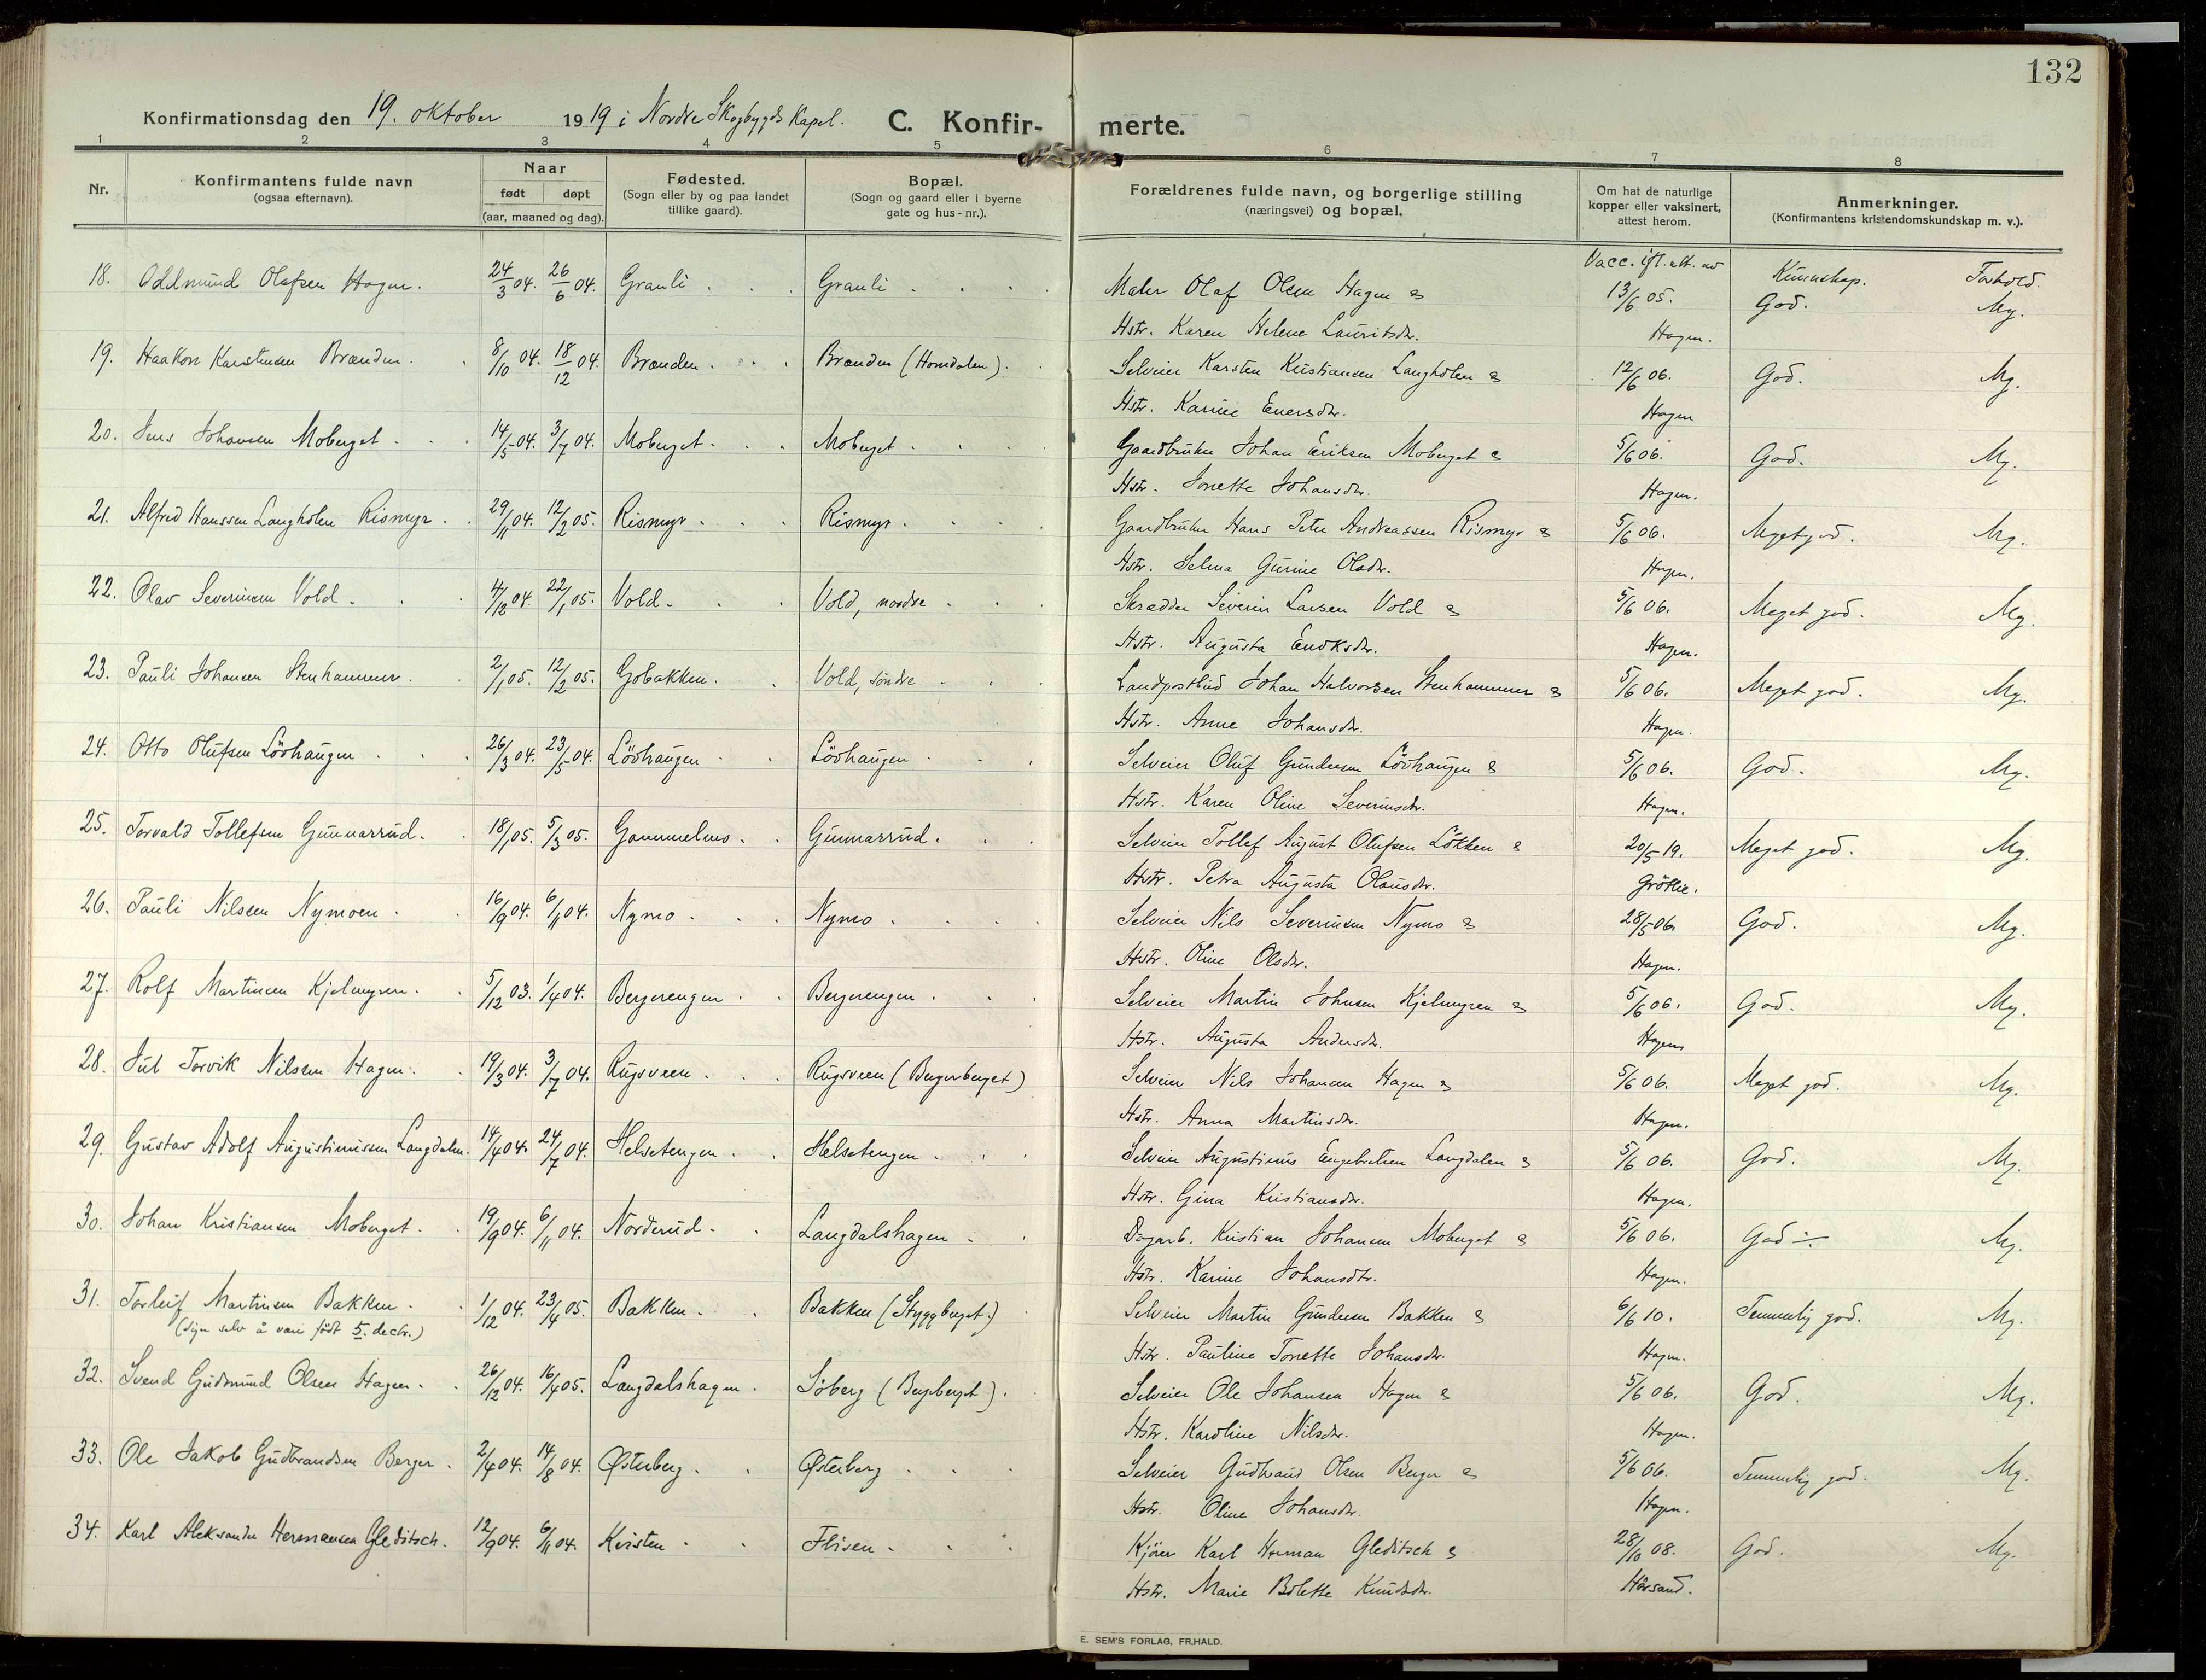 132
Konfirmationsdag den 19. oktober 1919 i Nordre Skogbygds Kapel. C. Konfir- merte.
1 2 3 4 5 6 7 8
Nr. Konfirmantens fulde navn (ogsaa efternavn). Naar født døpt (aar, maaned og dag). Fødested. (Sogn eller by og paa landet tillike gaard). Bopæl. (Sogn og gaard eller i byerne gate og hus-nr.). Forældrenes fulde navn, og borgerlige stilling (næringsvei) og bopæl. Om hat de naturlige kopper eller vaksinert, attest herom. Anmerkninger. (Konfirmantens kristendomskundskap m. v.).
Vacc. ifl. att. av Kunnskap. Forhold.
18. Oddmund Olafsen Hagen. 24/3 04. 26/6 04. Granli Granli Maler Olaf Olsen Hagen & 13/6 05. God. Mg.
Hstr. Karen Helene Lauritsdr. Hagen.
19. Haakon Karstensen Brænden. 8/10 04. 18/12 04. Brænden Brænden (Horndalen). Selveier Karsten Kristiansen Langholen & 12/6 06. God. Mg.
Hstr. Karine Enersdr. Hagen
20. Jens Johansen Moberget 14/5 04. 3/7 04. Moberget Moberget Gaardbruker Johan Eriksen Moberget & 5/6 06. God. Mg.
Hstr. Jonette Johansdr. Hagen.
21. Alfred Hanssen Langholen Rismyr. 29/11 04. 12/2 05. Rismyr Rismyr. Gaardbruker Hans Peter Andreassen Rismyr & 5/6 06. Meget god. Mg.
Hstr. Selma Gurine Olsdr. Hagen.
22. Olav Severinsen Vold. 4/12 04. 22/1 05. Vold. Vold, nordre Skrædder Severin Larsen Vold & 5/6 06. Meget god. Mg.
Hstr. Augusta Eriksdr. Hagen.
23. Pauli Johansen Stenhammer. 2/1 05. 12/2 05. Gobakken. Vold, søndre Landpostbud Johan Halvorsen Stenhammer & 5/6 06. Meget god. Mg.
Hstr. Anne Johansdr. Hagen.
24. Otto Olufsen Lövhaugen 26/3 04. 23/5 04. Lövhaugen Lövhaugen Selveier Oluf Gundersen Lövhaugen & 5/6 06. God. Mg.
Hstr. Karen Oline Severinsdr. Hagen.
25. Torvald Tollefsen Gunnarrud. 18/1 05. 5/3 05. Gammelmo. Gunnarrud. Selveier Tollef August Olufsen Lökken & 20/5 19. Meget god. Mg.
Hstr. Petra Augusta Olausdr. Gröttie.
26. Pauli Nilsen Nymoen. 16/9 04. 6/11 04. Nymo Nymo. Selveier Nils Severinsen Nymo & 28/5 06. God. Mg.
Hstr. Oline Olsdr. Hagen.
27. Rolf Martinsen Kjelmyren. 5/12 03. 1/4 04. Bergerengen Bergerengen. Selveier Martin Johnsen Kjelmyren & 5/6 06. God. Mg.
Hstr. Augusta Andersdr. Hagen
28. Jul Torvik Nilsen Hagen. 19/3 04. 3/7 04. Rugsveen Rugsveen (Bergerberget) Selveier Nils Johansen Hagen & 5/6 06. Meget god. Mg.
Hstr. Anna Martinsdr. Hagen.
29. Gustav Adolf Augustinussen Langdalen. 14/4 04. 24/7 04. Helsetengen Helsetengen Selveier Augustinus Engebretsen Langdalen & 5/6 06. God. Mg.
Hstr. Gina Kristiansdr. Hagen.
30. Johan Kristiansen Moberget. 19/9 04. 6/11 04. Norderud Langdalshagen Dagarb. Kristian Johansen Moberget & 5/6 06. God ÷. Mg.
Hstr. Karine Johansdtr. Hagen.
31. Torleif Martinsen Bakken. 1/12 04. 23/4 05. Bakken. Bakken (Styggberget.) Selveier Martin Gundersen Bakken & 6/6 10. Temmelig god. Mg.
(Siger selv å være født 5. decbr.) Hstr. Pauline Tonette Johansdr. Hagen.
32. Svend Gudmund Olsen Hagen. 26/12 04. 16/4 05. Langdalshagen. Söberg (Bergberget). Selveier Ole Johansen Hagen & 5/6 06. God. Mg.
Hstr. Karoline Nilsdr. Hagen.
33. Ole Jakob Gudbrandsen Berger. 2/4 04. 14/8 04. Østerberg. Østerberg Selveier Gudbrand Olsen Berger & 5/6 06. Temmelig god. Mg.
Hstr. Oline Johansdr. Hagen.
34. Karl Aleksander Hermansen Gleditsch. 12/9 04. 6/11 04. Kvisten Flisen. Kjörer Karl Herman Gleditsch & 28/10 08. God. Mg.
Hstr. Marie Bolette Knudsdr. Hörsand.
E. SEM'S FORLAG, FR.HALD.